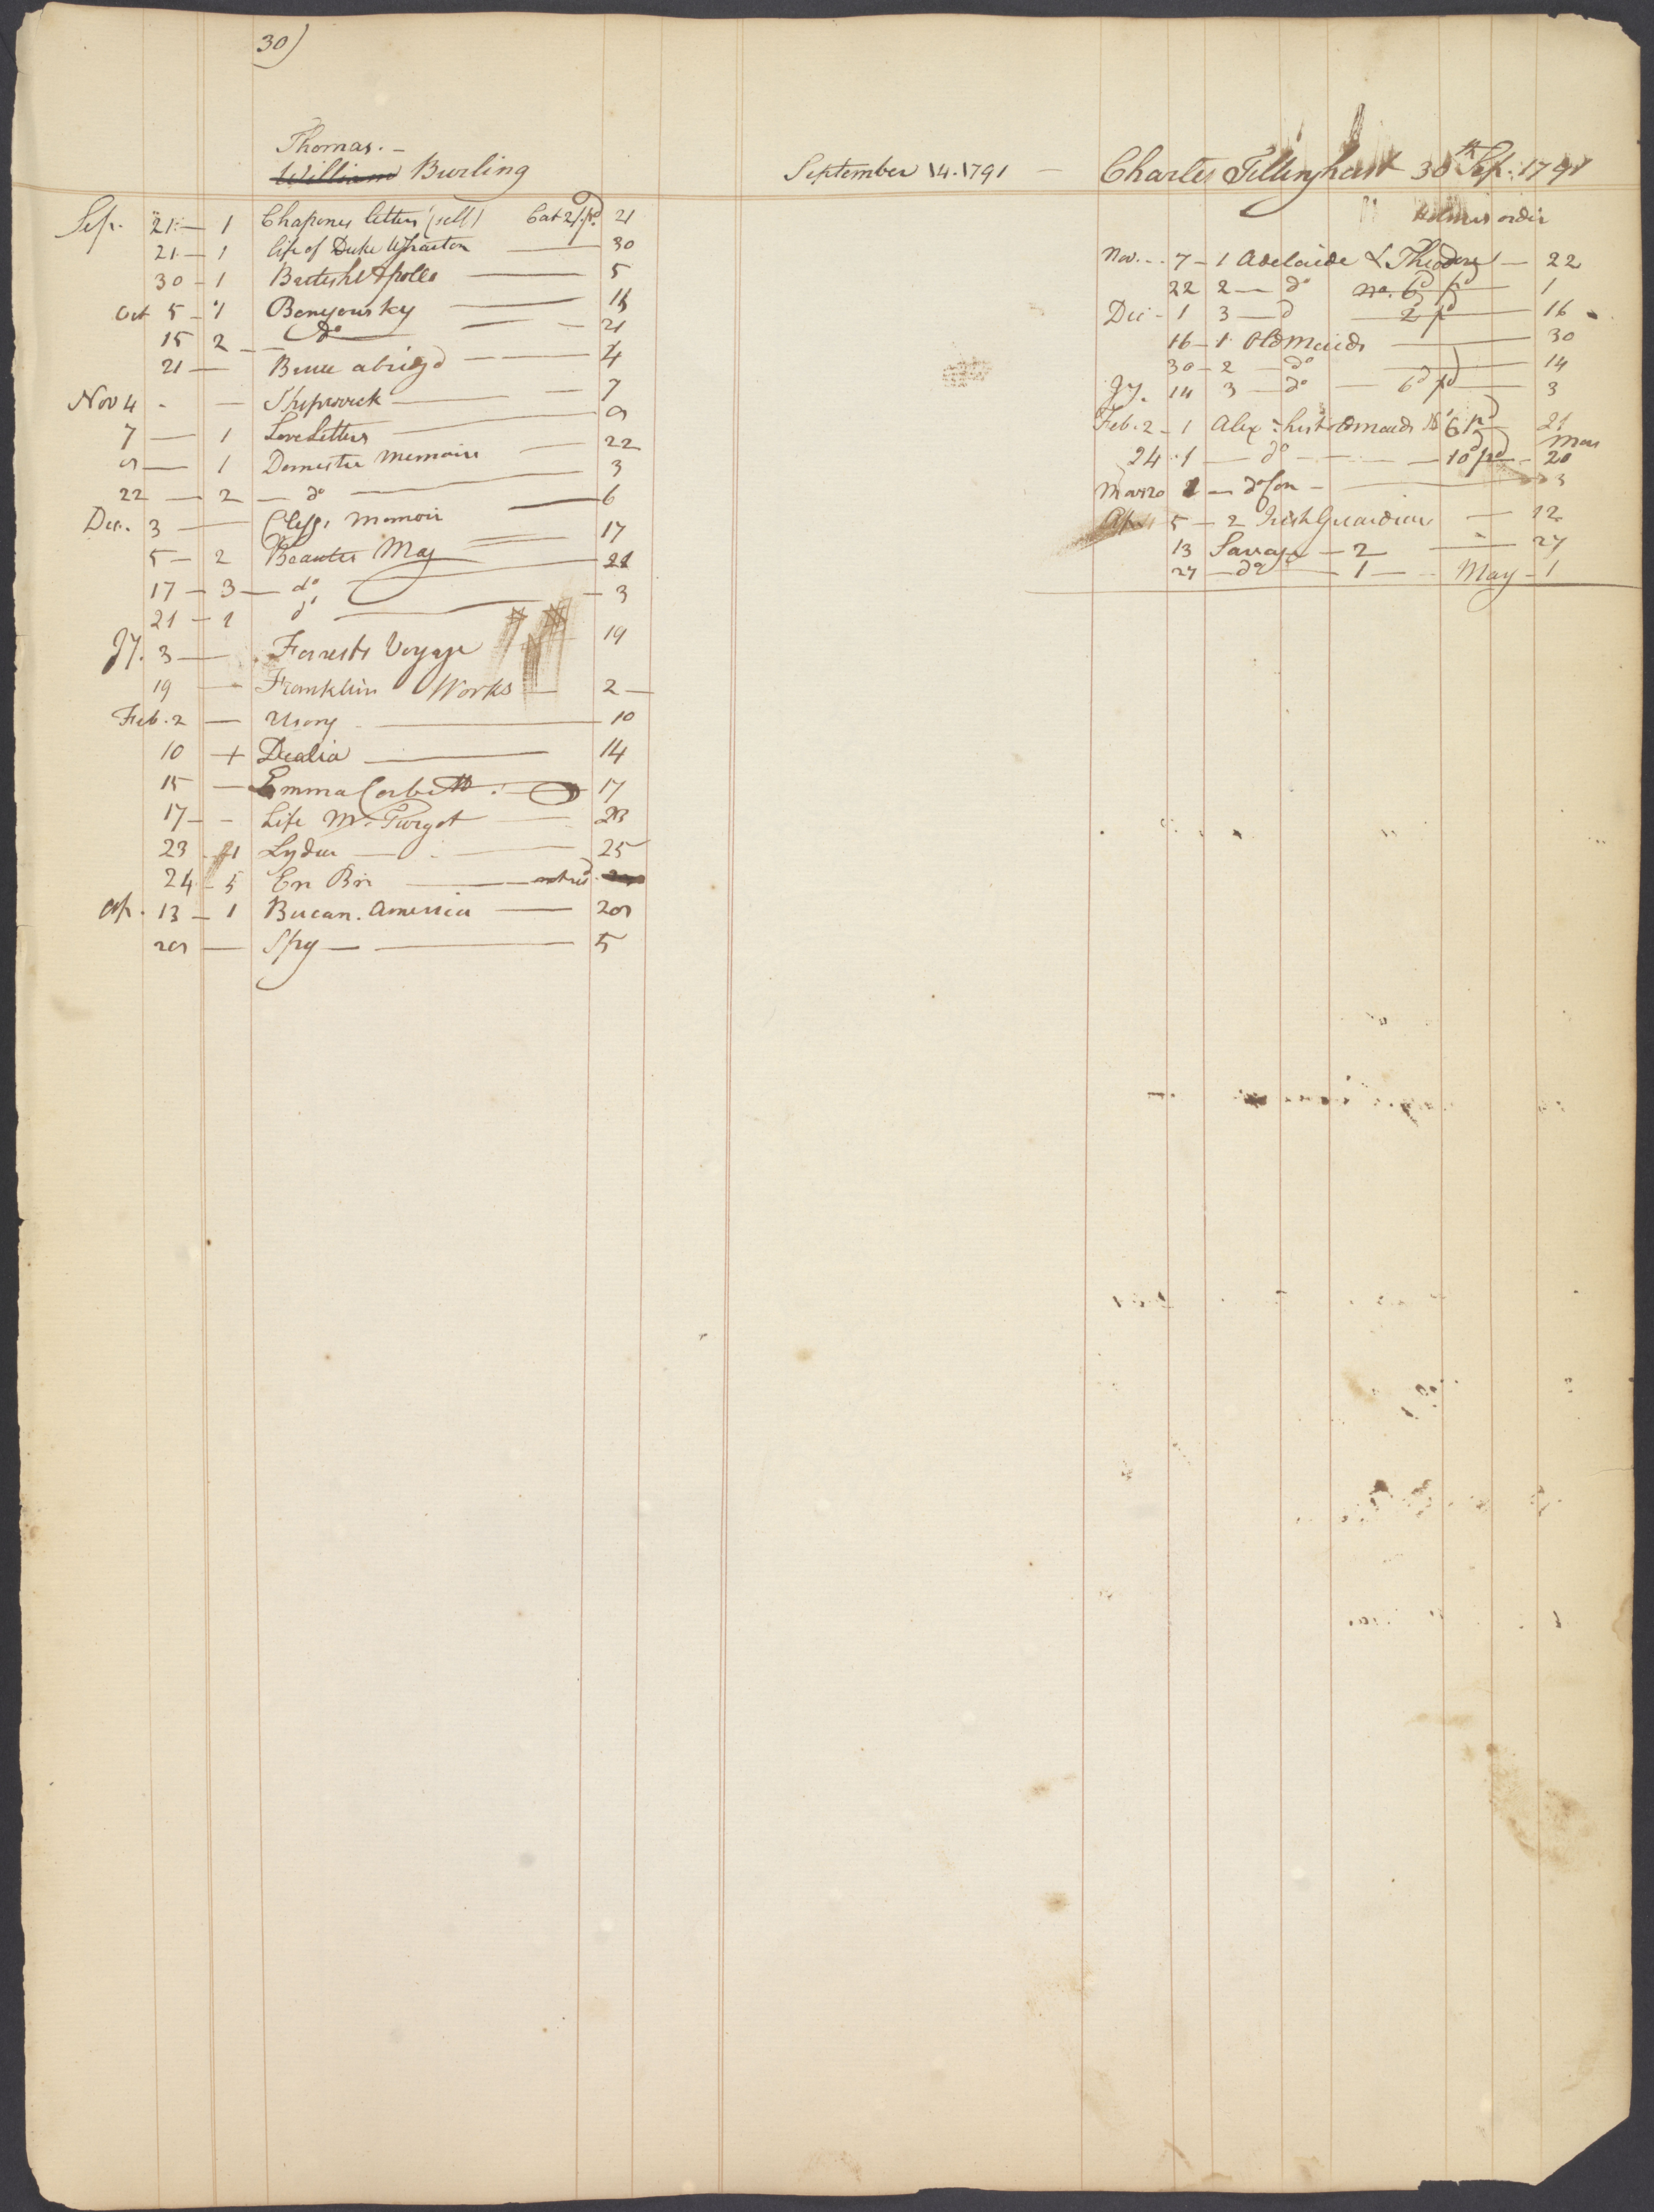 30)
Thomas. -
William Burling
September 14. 1791 -
Sep. 21 - 1 Chapones letters (self) Cat 2/ pd. 21
21 - 1 life of Duke Wharton 30
30 - 1 British Apollo 5
Oct 5 - 1 Benyousky 15
15 2 do 21
21 - Bruce abrigd 4
Nov 4 - - Shipwreck 7
7 - 1 Love Letters 9
9 - 1 Domestic Memoirs 22
22 - 2 - do 3
Dec. 3 - Cleyg. Memoir 6
5 - 2 Beauties Mag 17
17 - 3 - do 21
21 - 1 do - 3
Jy. 3 - Forrests Voyage 19
19 - Franklin Works - 2 -
Feb. 2 - Usory 10
10 + Dealia 14
15 - Emma Corbett 17
17 - - Life Mr. Turgot 23
23 - 1 Lydia 25
24 - 5 En Bri
Ap. 13 - 1 Bucan. America 29
29 - Spy - 5
Charles Tillinghast 30th Sep. 1791
Holmes order
Nov. - 7 - 1 Adelaide & Theodore - 22
22 2 - do no. 6d pd 1
Dec - 1 3 - d 2d pd 16
16 - 1 Old Maids 30
30 - 2 - do 14
Jy. 14 3 - do - 6d pd 3
Feb. 2 - 1 Alex: hist Omaids 6 pd 21
24 - 1 - do - 10d pd - Mar 20
Mar 20 2 - do Con - 3
Ap. 5 - 2 Irish Guardian - 12
13 Savage - 2 - 27
27 - do - 1 - May - 1